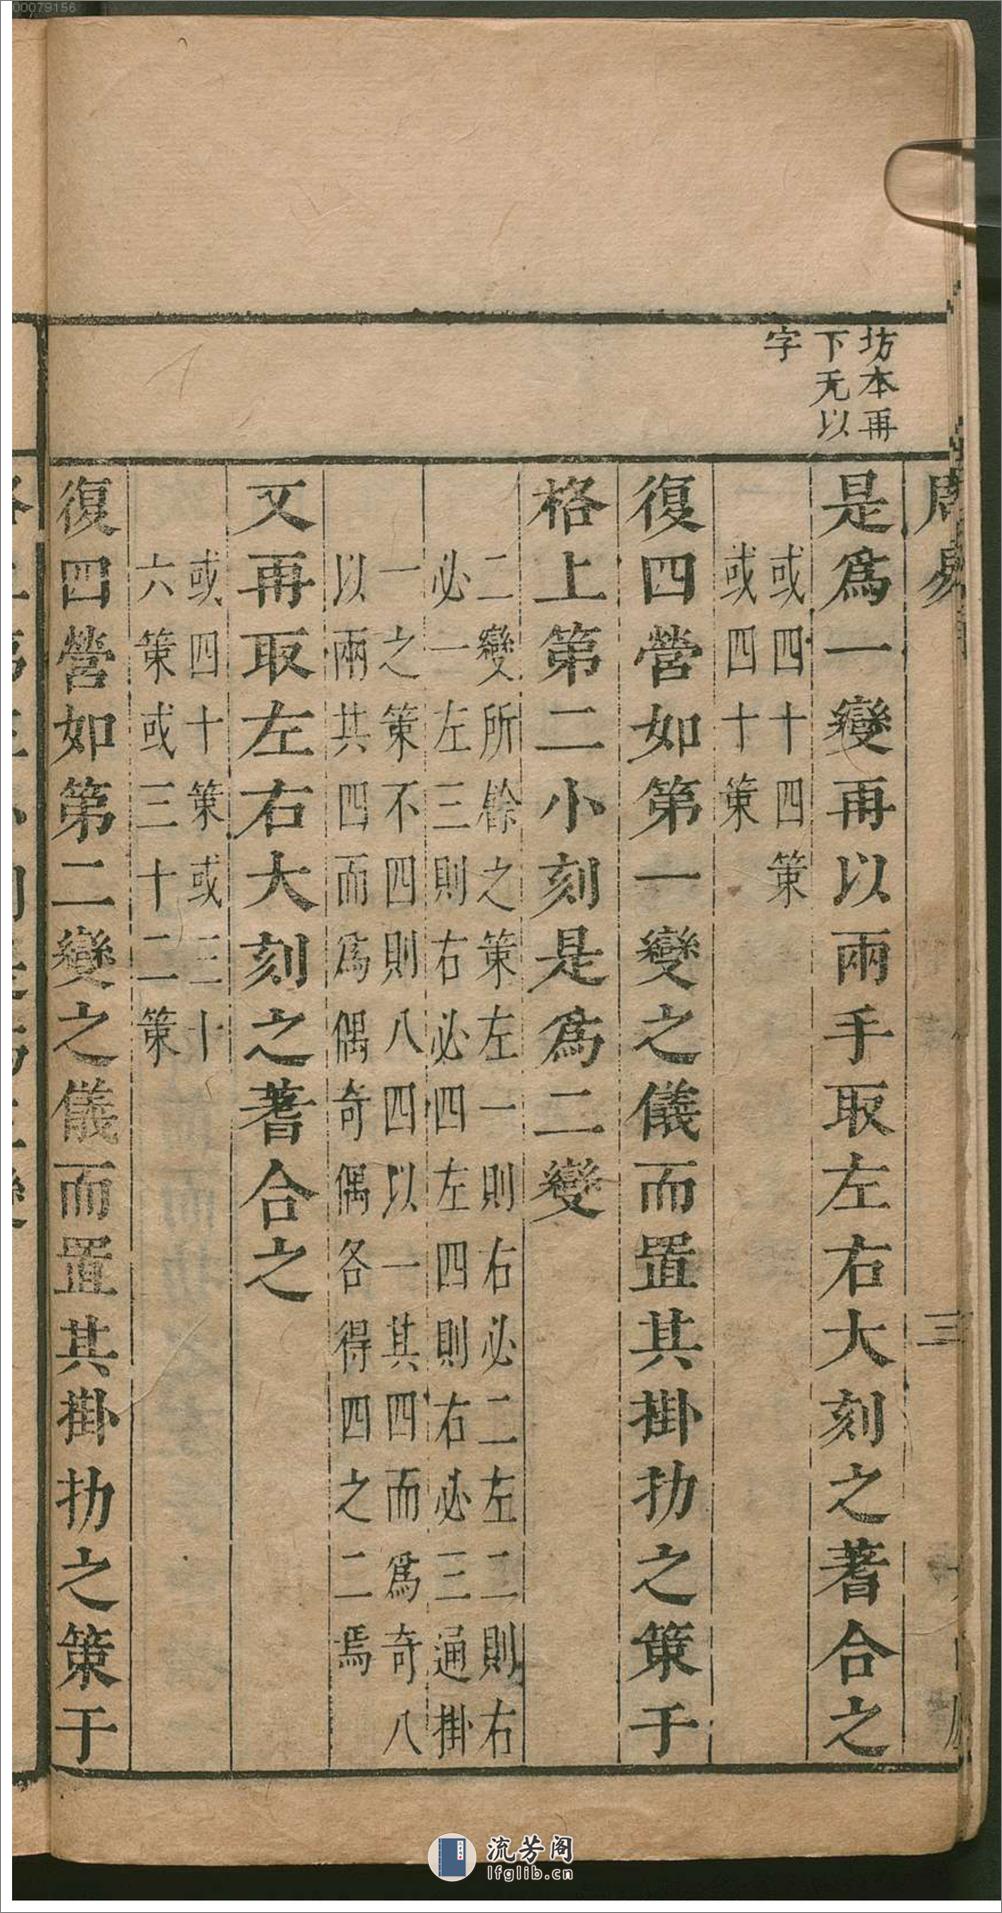 00079156
坊本再
下无以
字
周易
三
是爲一變再以兩手取左右大刻之蓍合之
或四十四策
或四十策
復四營如第一變之儀而置其掛扐之策于
格上第二小刻是爲二變
二變所餘之策左一則右必二左二則右
必一左三則右必四左四則右必三通掛
一之策不四則八四以一其四而爲奇八
以兩其四而爲偶奇偶各得四之二焉
又再取左右大刻之蓍合之
或四十策或三十
六策或三十二策
復四營如第二變之儀而置其掛扐之策于
流芳阁
lfglib.cn